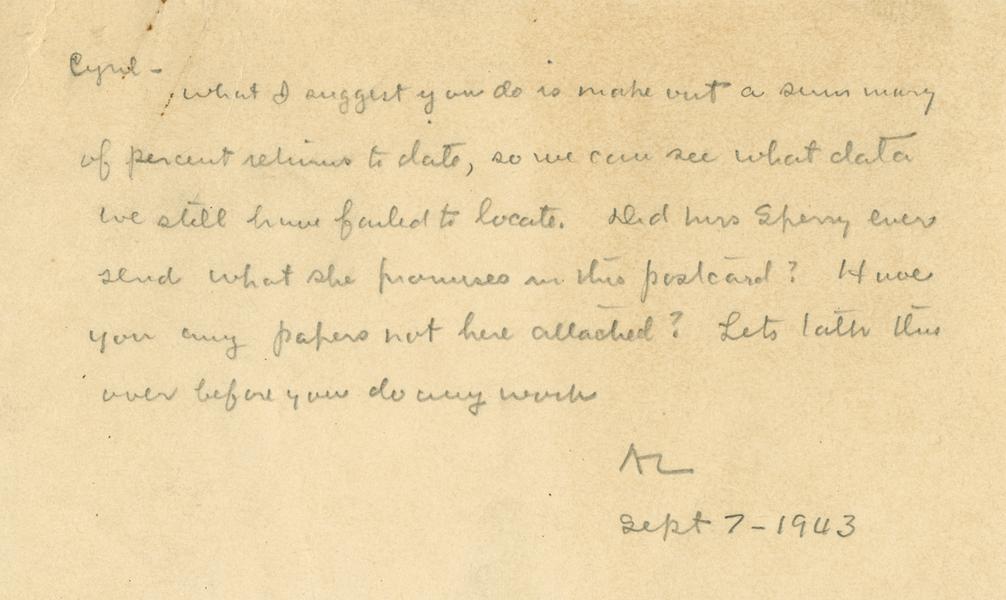 Cyril -
what I suggest you do is make out a summary
of percent returns to date, so we can see what data
we still have failed to locate. Did Mrs Sperry ever
send what she promises in this postcard? Have
you any papers not here attached? Lets talk this
over before you do any work
AL
Sept 7-1943